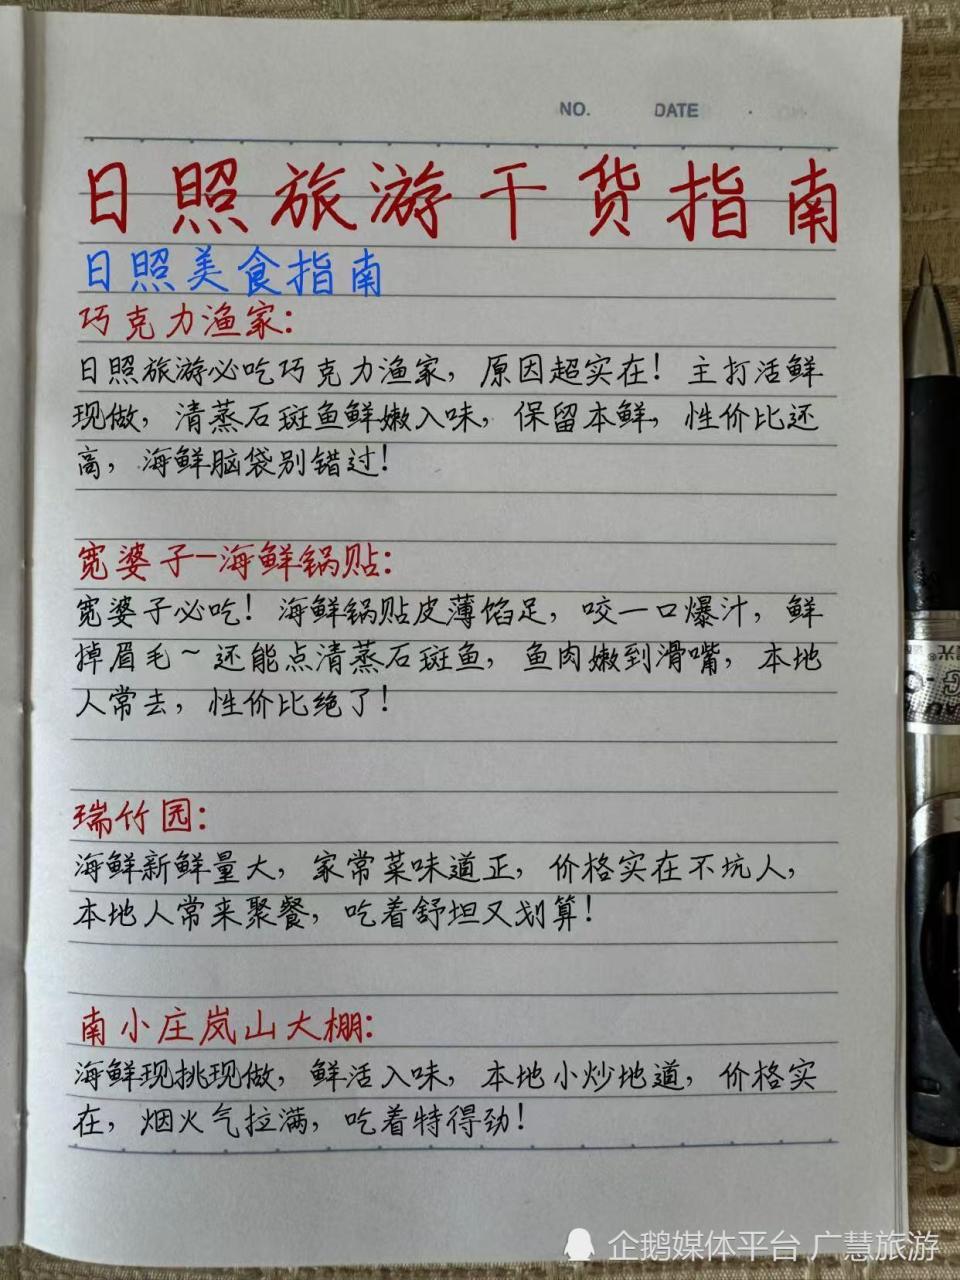 NO. DATE
日照旅游干货指南
日照美食指南
巧克力渔家:
日照旅游必吃巧克力渔家，原因超实在！主打活鲜
现做，清蒸石斑鱼鲜嫩入味，保留本鲜，性价比还
高，海鲜脑袋别错过！
宽婆子—海鲜锅贴:
宽婆子必吃！海鲜锅贴皮薄馅足，咬一口爆汁，鲜
掉眉毛~还能点清蒸石斑鱼，鱼肉嫩到滑嘴，本地
人常去，性价比绝了！
瑞竹园:
海鲜新鲜量大，家常菜味道正，价格实在不坑人，
本地人常来聚餐，吃着舒坦又划算！
南小庄岚山大棚:
海鲜现挑现做，鲜活入味，本地小炒地道，价格实
在，烟火气拉满，吃着特得劲！
企鹅媒体平台 广慧旅游